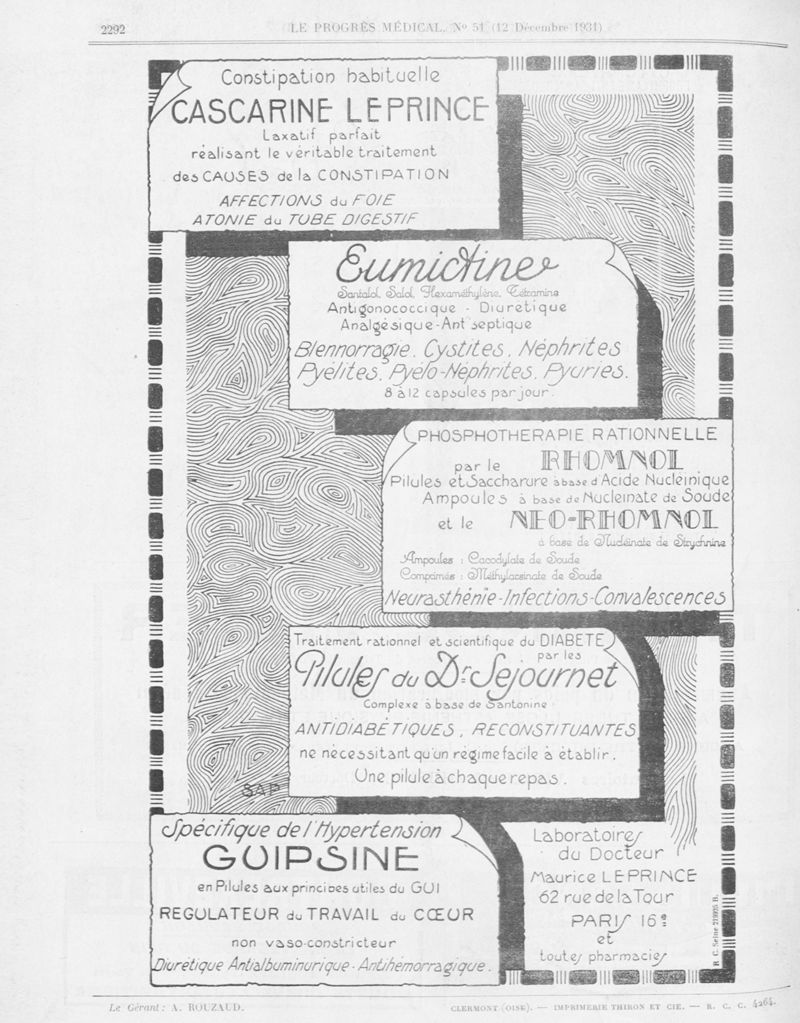 2292
LE PROGRÈS MÉDICAL, No 51 (12 Décembre 1931)
Constipation habituelle
CASCARINE LEPRINCE
Laxatif parfait
réalisant le véritable traitement
des CAUSES de la CONSTIPATION
AFFECTIONS du FOIE
ATONIE du TUBE DIGESTIF
Eumictine
Santalol, Salol, Hexaméthylène, Tétramine
Antigonococcique - Diurétique
Analgésique - Antiseptique
Blennorragie, Cystites, Néphrites
Pyélites, Pyélo-Néphrites, Pyuries.
8 à 12 capsules par jour.
PHOSPHOTHERAPIE RATIONNELLE
par le RHOMNOL
Pilules et Saccharure à base d'Acide Nucléinique
Ampoules à base de Nucléinate de Soude
et le NEO-RHOMNOL
à base de Nucléinate de Strychnine
Ampoules : Cacodylate de Soude
Comprimés : Méthylarsinate de Soude
Neurasthénie - Infections - Convalescences
Traitement rationnel et scientifique du DIABETE
par les
Pilules du Dr. Séjournet
Complexe à base de Santonine
ANTIDIABÉTIQUES, RECONSTITUANTES
ne nécessitant qu'un régime facile à établir.
Une pilule à chaque repas.
SAP
Spécifique de l'Hypertension
GUIPSINE
en Pilules aux principes utiles du GUI
REGULATEUR du TRAVAIL du CŒUR
non vaso-constricteur
Diurétique Antialbuminurique - Antihémorragique.
Laboratoires
du Docteur
Maurice LEPRINCE
62 rue de la Tour
PARIS 16e
et
toutes pharmacies
R. C. Seine 219925 B.
Le Gérant : A. ROUZAUD.
CLERMONT (OISE). — IMPRIMERIE THIRON ET CIE. — R. C. C. 4264.